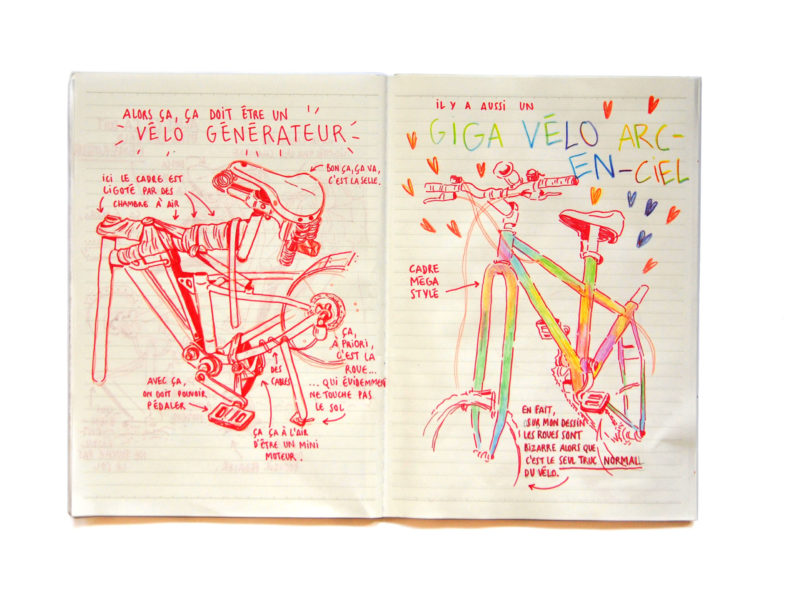 ALORS ÇA, ÇA DOIT ÊTRE UN
VÉLO GÉNÉRATEUR
ICI LE CADRE EST
LIGOTÉ PAR DES
CHAMBRE À AIR
BON ÇA, ÇA VA,
C'EST LA SELLE.
ÇA,
À PRIORI,
C'EST LA
ROUE...
... QUI ÉVIDEMMENT
NE TOUCHE PAS
LE SOL
AVEC ÇA,
ON DOIT POUVOIR
PÉDALER
DES
CABLES
ÇA ÇA À L'AIR
D'ÊTRE UN MINI
MOTEUR.
IL Y A AUSSI UN
GIGA VÉLO ARC-
EN-CIEL
CADRE
MÉGA
STYLÉ
EN FAIT,
SUR MON DESSIN
LES ROUES SONT
BIZARRE ALORS QUE
C'EST LE SEUL TRUC NORMAL
DU VÉLO.